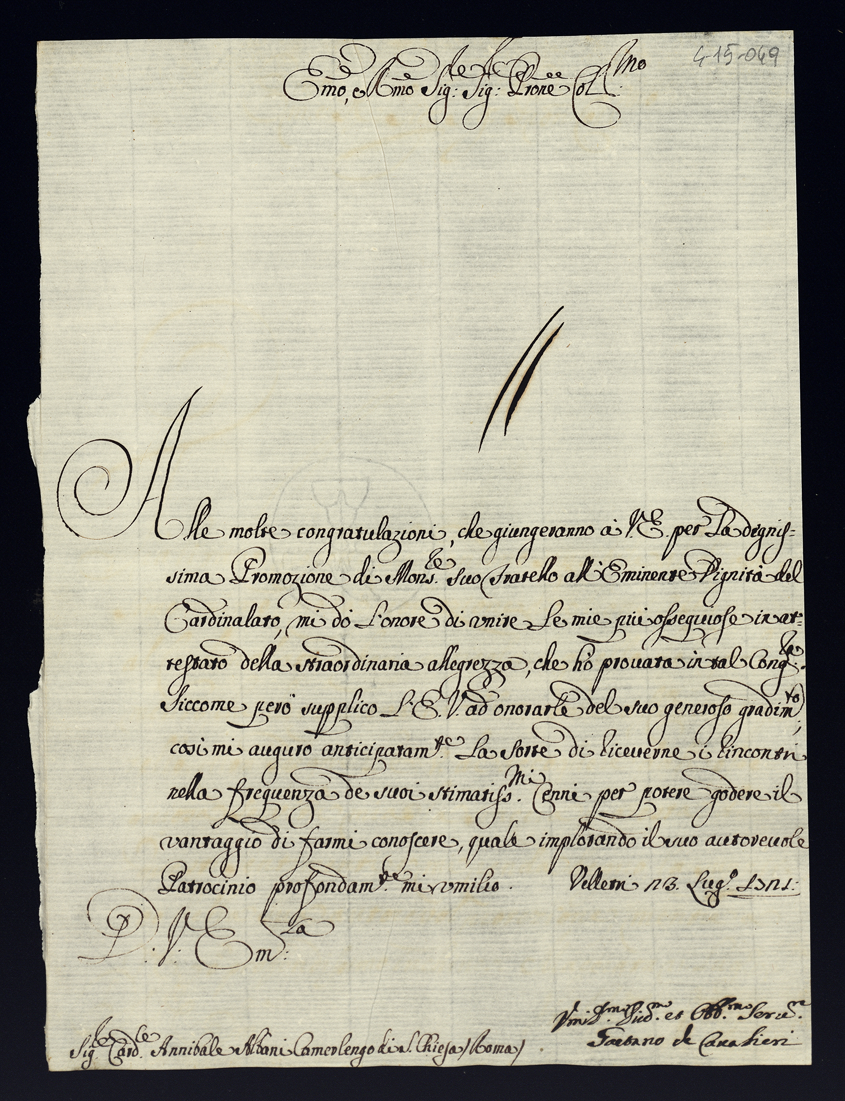 4-15-049
Emo, e Rmo Sig:re Sig:re Prone Coll:mo
Alle molte congratulazioni, che giungeranno à V.E. per la degnis=
sima Promozione di Mons.re suo Fratello all'Eminente Dignità del
Cardinalato, mi dò l'onore di unire le mie più ossequiose in at=
testato della straordinaria allegrezza, che hò provata in tal Cong.ra
Siccome però supplico l'E.V. ad onorarle del suo generoso gradim.to,
così mi auguro anticipatam.te la sorte di riceverne i rincontri
nella frequenza de suoi stimatiss.mi Cenni per potere godere il
vantaggio di farmi conoscere, quale implorando il suo autorevole
Patrocinio profondam.te mi umilio. Velletri 23. Lug.o 1721:
D. V. Em:za
Um̃o Div.mo et Obb.mo Serv.re
Gaetano de Cavalieri
Sig.re Card.le Annibale Albani Camerlengo di S. Chiesa / Roma /